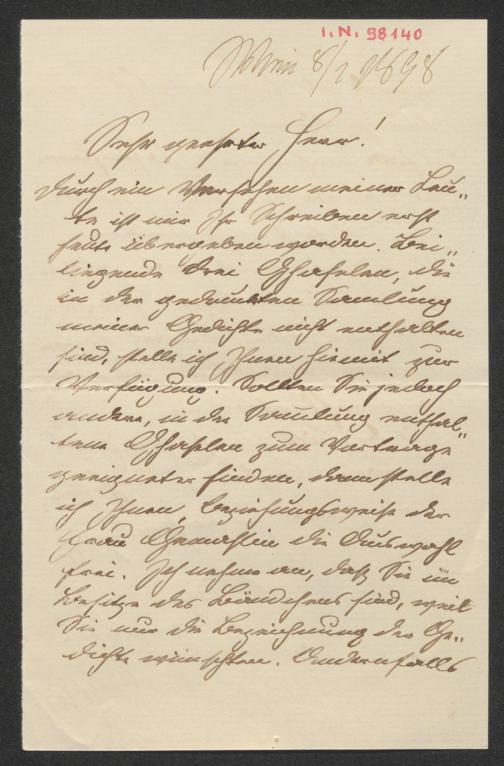 I.N. 98140
Wien 8/2 1898
Sehr geehrter Herr!
Durch ein Versehen meiner Leu„
te ist mir Ihr Schreiben erst
heute übergeben worden. Bei„
liegende drei Ghaselen, die
in der gedruckten Samlung
meiner Gedichte nicht enthalten
sind, stelle ich Ihnen hiemit zur
Verfügung. Sollten Sie jedoch
andere, in der Samlung enthal„
tene Ghaselen zum Vortrage
geeigneter finden, dann stelle
ich Ihnen, beziehungsweise der
Frau Gemahlin die Auswahl
frei. Ich nehme an, daß Sie im
Besitze des Bändchens sind, weil
Sie nur die Bezeichnung der Ge„
dichte wünschten. Andernfalls